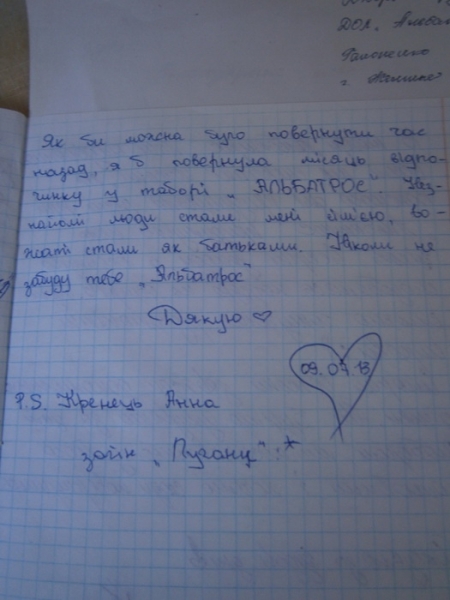 ДОЛ. Альба
Як би можна було повернути час
назад, я б повернула місяць відпо-
чинку у таборі „АЛЬБАТРОС". Нез-
найомі люди стали мені сім'єю, во-
жаті стали як батьками. Ніколи не
забуду тебе „Альбатрос"
Дякую ♡
09.07.13
P.S. Кренець Анна
загін „Пугачі" *